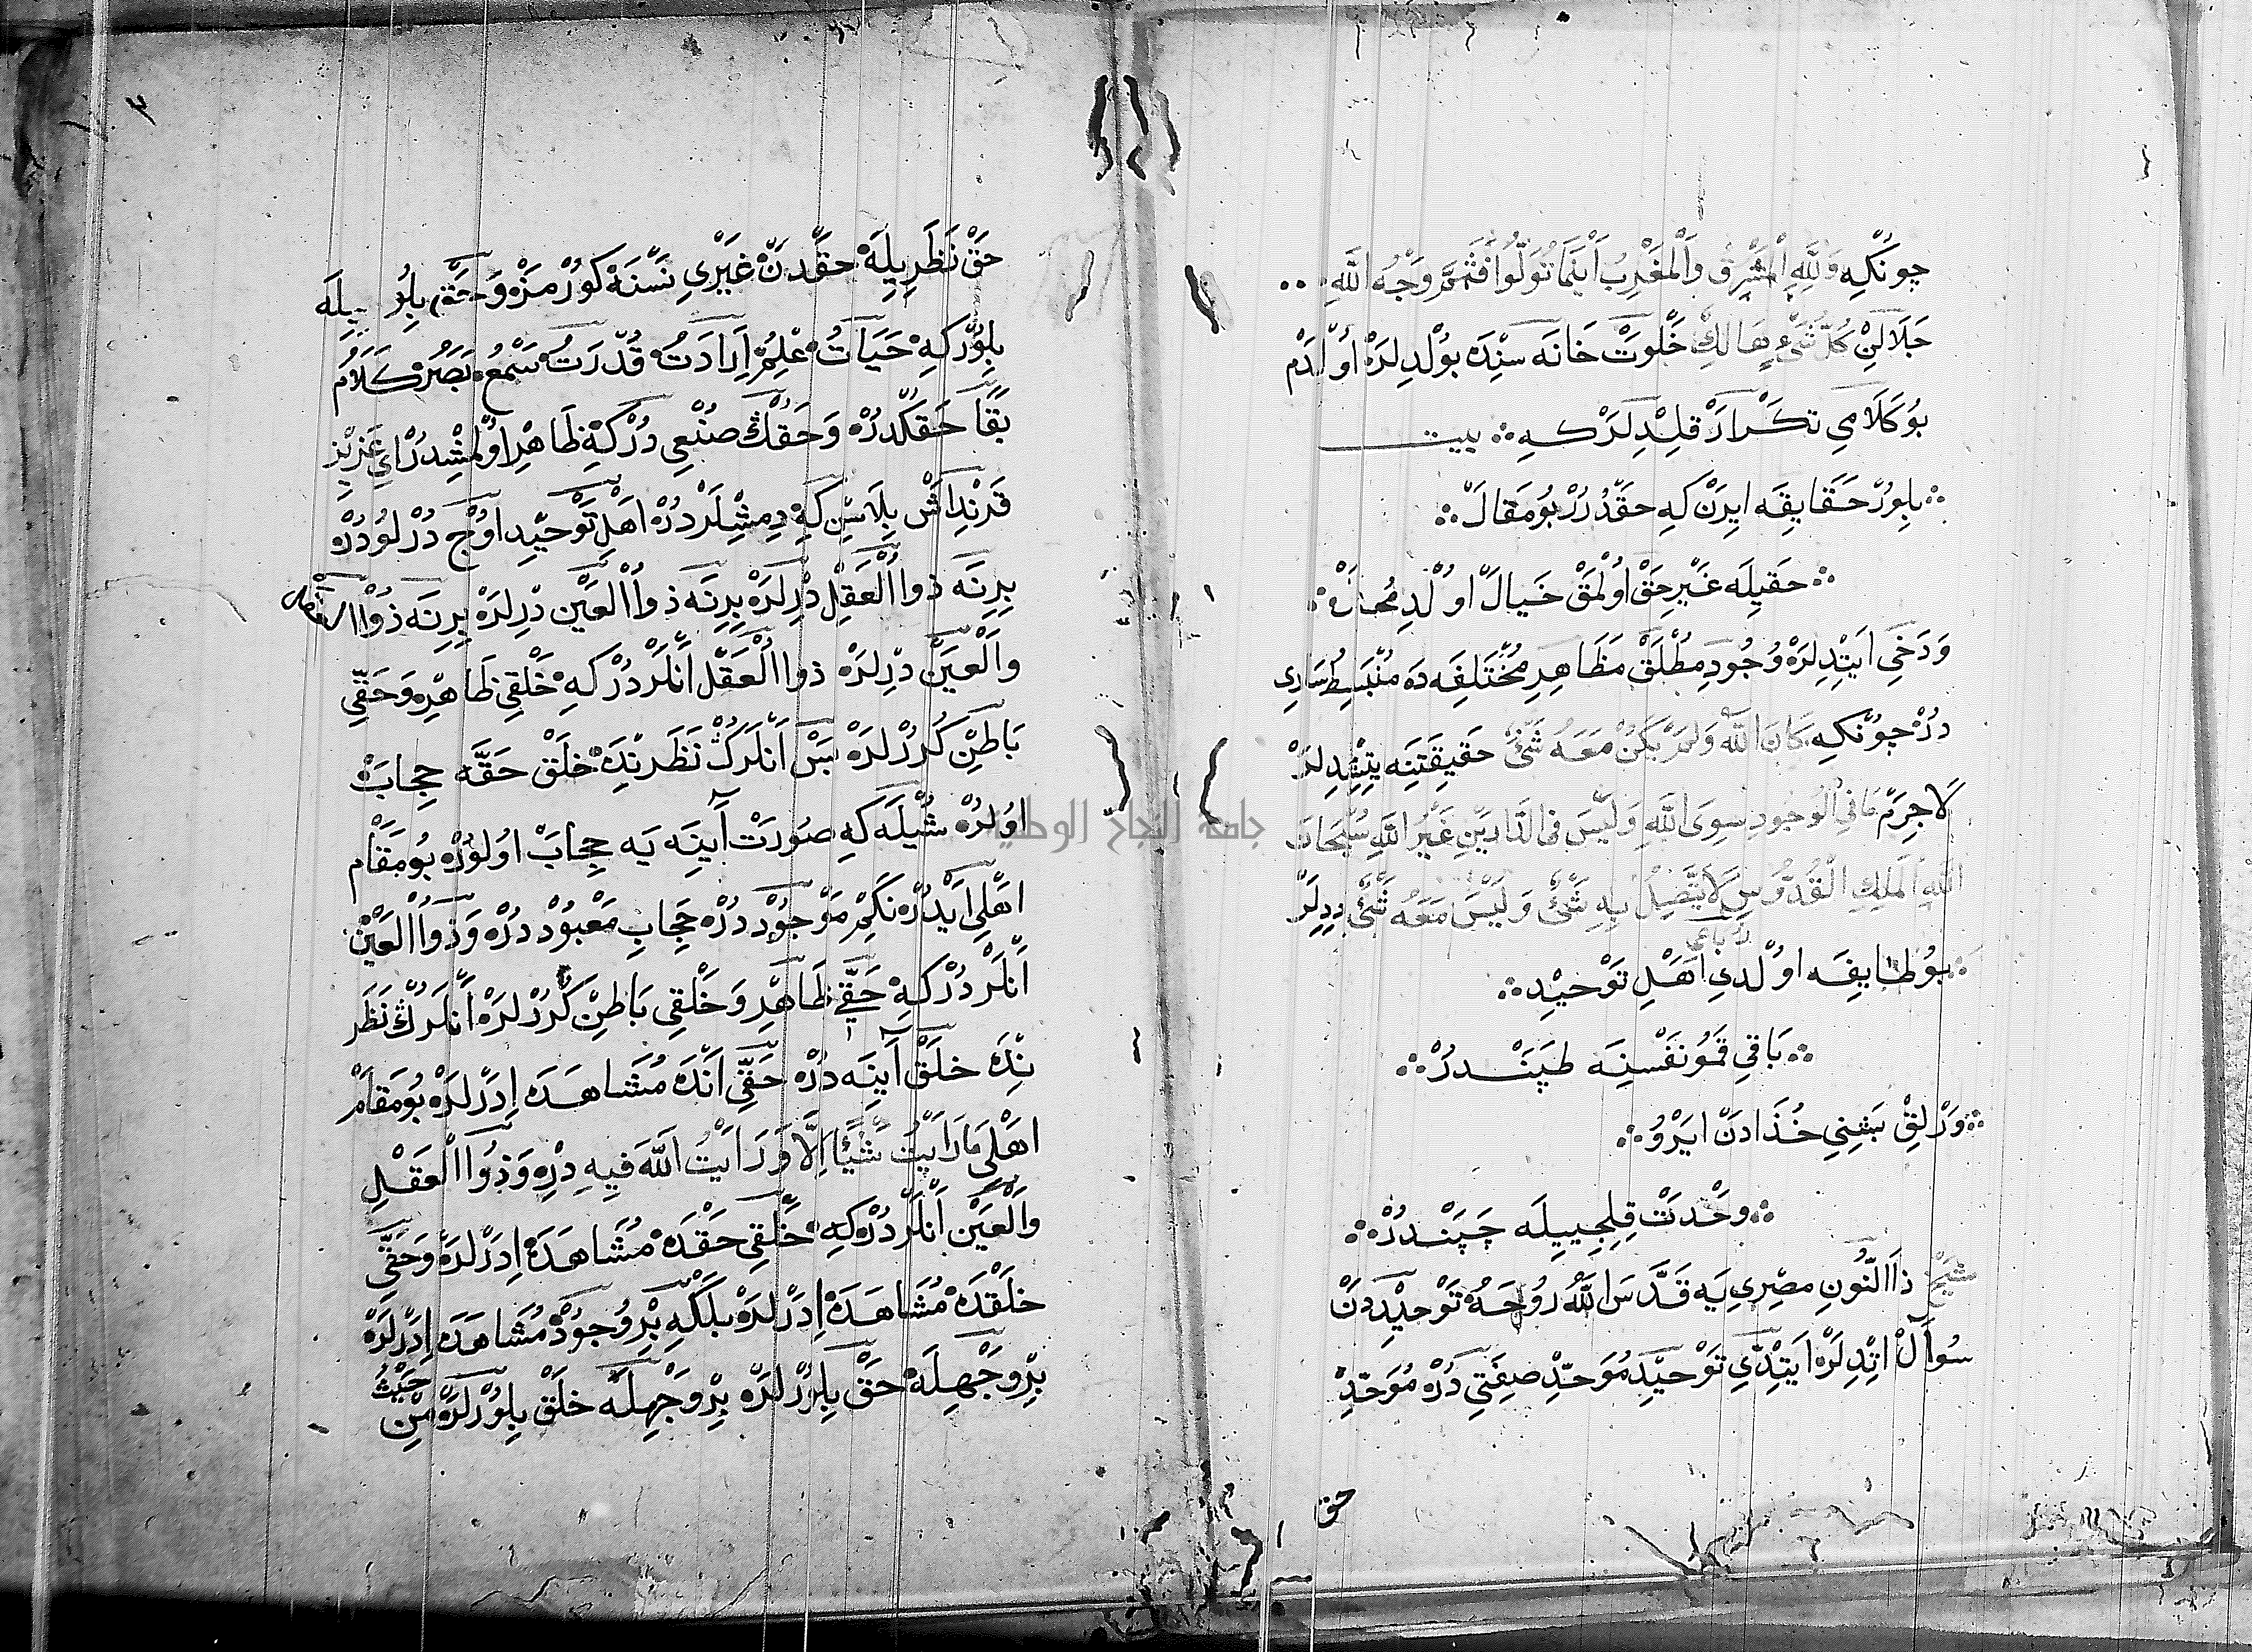 چونكه وَلِلَّهِ الْمَشْرِقُ وَالْمَغْرِبُ اَيْنَمَا تُوَلُّوا فَثَمَّ وَجْهُ اللَّهِ
جَلَالِنْ كُلُّ شَيْءٍ هَالِكٌ خَلْوَتْ خَانَه سِنْدَه بُولْدِلَرْ اُولْدَمْ
بُو كَلَامِي تَكْرَارْ قِلْدِلَرْ كِه بيت
بِلُورْ حَقَايِقَه ايرَنْ كِه حَقْدُرُرْ بُو مَقَالْ
حَقِيلَه غَيْرِ حَقْ اُولْمَقْ خَيَالْ اُولْدِ مُحَالْ
وَدَخِي اَيْتْدِلَرْ وُجُودِ مُطْلَقْ مَظَاهِرِ مُخْتَلِفَه دَه مُنْبَسِطْ سَارِي
دُرْ چُونْكِه كَانَ اللَّهُ وَلَمْ يَكُنْ مَعَهُ شَيْءٌ حَقِيقَتِنَه يِتِشْدِلَرْ
لَاجَرَمْ مَا فِي الْوُجُودِ سِوَى اللَّهِ وَلَيْسَ فِي الدَّارَيْنِ غَيْرُ اللَّهِ سُبْحَانَ
اللَّهِ الْمَلِكِ الْقُدُّوسِ لَا يَتَّصِلُ بِهِ شَيْءٌ وَلَيْسَ مَعَهُ شَيْءٌ دِدِلَرْ
رباعي
بُو طَايِفَه اُولْدِي اَهْلِ تَوْحِيدْ
بَاقِي قَمُو نَفْسِنَه طَپَنْدُرْ
وَرْلِقْ بَشِنِي خُدَادَنْ ايرُو
وَحْدَتْ قِلِجِيلَه چَپَنْدُرْ
شَيْخْ ذَا النُّونِ مِصْرِي يَه قَدَّسَ اللَّهُ رُوحَهُ تَوْحِيدْدَنْ
سُوآلْ اِتْدِلَرْ اَيْتْدِي تَوْحِيدِ مُوَحِّدْ صِفَتِي دُرْ مُوَحِّدْ
حق
٣
حَقْ نَظَرِيلَه حَقْدَنْ غَيْرِي نَسْنَه كُورْمَزْ وَحَقِّي بِلُور يِيلَه
بِلُورْكِه حَيَاتْ عِلِمْ اِرَادَتْ قُدْرَتْ سَمْعْ بَصَرْ كَلَامْ
بَقَا حَقْكَدُرْ وَحَقُّكْ صُنْعِي دُرْكِه ظَاهِرْ اُولْمِشْدُرْ اَيْ عَزِيزْ
قَرِنْدَاشْ بِلَاسِنْ كِه دِمِشْلَرْدُرْ اَهْلِ تَوْحِيدْ اُوجْ دُرْلُودُرْ
بِرِنَه ذُوا الْعَقِلْ دِرلَرْ بِرِنَه ذُوا الْعَيْنْ دِرلَرْ بِرِنَه ذُوا العقل
وَالْعَيْنْ دِرلَرْ ذُوا الْعَقْلْ اَنْلَرْدُرْكِه خَلْقِي ظَاهِرْ وَحَقِّي
بَاطِنْ كُرُرْلَرْ بَسْ اَنْلَرُكْ نَظَرِنْدَه خَلْقْ حَقَّه حِجَابْ
اُولُرْ شُيْلَه كِه صُورَتْ آيِنَه يَه حِجَابْ اُولُورْ بُو مَقَامْ
اَهْلِي اَيْدُرْ نَكِمْ مَوْجُودْ دُرْ حِجَابِ مَعْبُودْ دُرْ وَذُوا الْعَيْنْ
اَنْلَرْدُرْكِه حَقِّي ظَاهِرْ وَخَلْقِي بَاطِنْ كُرُرْلَرْ اَنْلَرُكْ نَظَرِ
نْدَه خَلْقْ آيِنَه دُرْ حَقِّي اَنْدَه مُشَاهَدَه اِدَرْلَرْ بُو مَقَامْ
اَهْلِي مَا رَاَيْتُ شَيْئًا اِلَّا وَرَاَيْتُ اللَّهَ فِيهِ دِرْ وَذُوا الْعَقْلِ
وَالْعَيْنْ اَنْلَرْدُرْكِه خَلْقِي حَقْدَه مُشَاهَدَه اِدَرْلَرْ وَحَقِّي
خَلْقْدَه مُشَاهَدَه اِدَرْلَرْ بَلْكِه بِرْ وُجُودْ مُشَاهَدَه اِدَرْلَرْ
بِرْ وَجْهِلَه حَقْ بِلُرْلَرْ بِرْ وَجْهِلَه خَلْقْ بِلُورْلَرْ مِنْ حَيْثُ
جامعة النجاح الوطنية